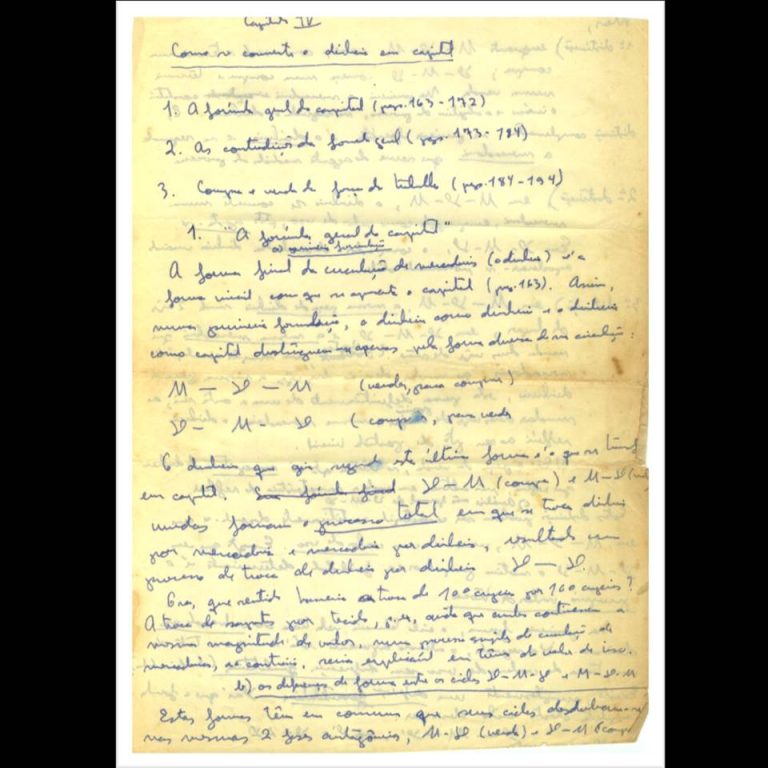 Capítulo IV
Como se converte o dinheiro em capital
1. A fórmula geral do capital (pgs. 163-172)
2. As contradições da fórmula geral (pgs. 173-184)
3. Compra e venda da força de trabalho (pgs. 184-194)
1. "A fórmula geral do capital"
a) primeira formulação
A forma final da circulação de mercadorias (o dinheiro) é a
forma inicial com que se apresenta o capital (pg. 163). Assim,
numa primeira formulação, o dinheiro como dinheiro e o dinheiro
como capital distinguem-se apenas pela forma diversa de sua circulação:
M — D — M (vender, para comprar)
D — M - D (comprar, para vender
O dinheiro que gira segundo esta última forma é o que se transf
em capital. D—M (compra) e M-D (
unidas formam o processo total em que se troca dinheiro
por mercadoria e mercadoria por dinheiro, resultado um
processo de troca de dinheiro por dinheiro D — D.
Ora, que sentido haveria a troca de 100 cruzeiros por 100 cruzeiros?
A troca de sapatos por tecido, p. ex., ainda que ambos contivessem a
mesma magnitude de valor, num processo simples de circulação de
mercadorias, ao contrário, seria explicável em têrmos do valor de uso.
b) as diferenças de forma entre os ciclos D-M-D e M-D-M
Estas formas têm em comum que seus ciclos desdobram-se
nas mesmas 2 fases antagônicas, M-D (venda) e D-M (compra